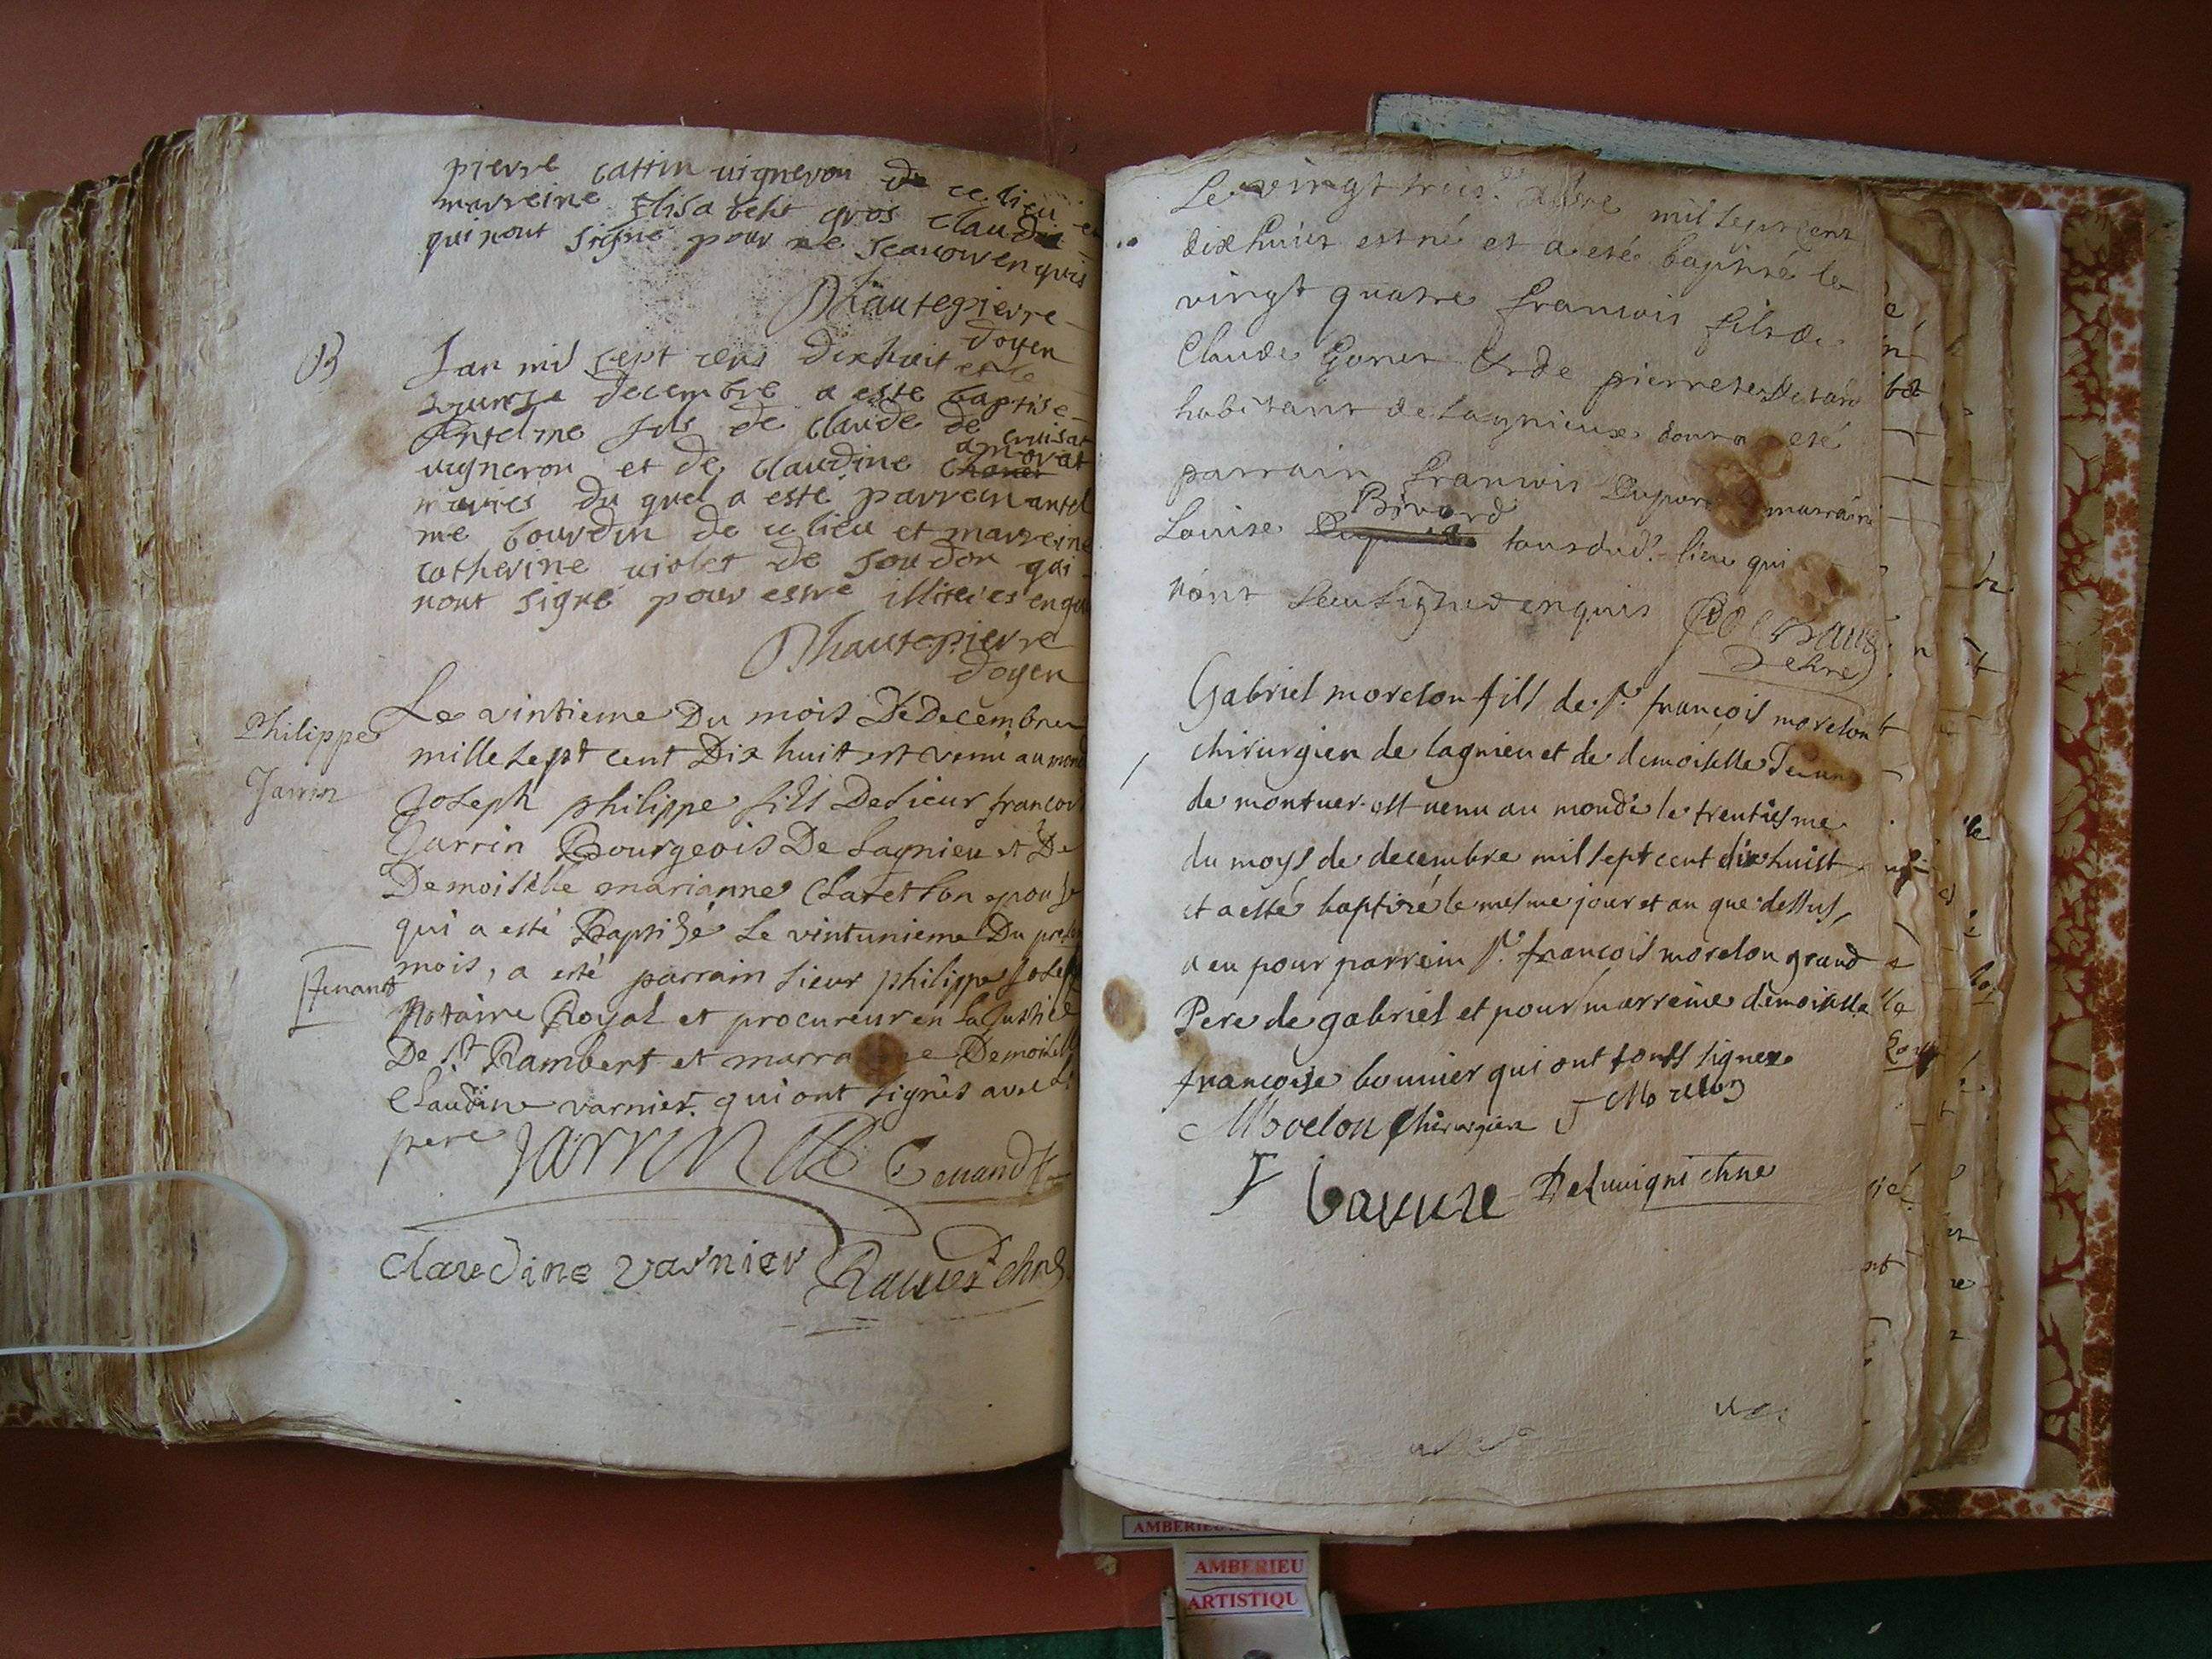 pierre cattin vigneron de ce lieu et
marreine Elisabeht gros claudi
qui nont signé pour ne scavoir enquis
Dhautepierre
doyen
B
Lan mil sept cens dixhuit et le
quinze decembre a este baptise
Antelme fils de claude de cruisat
vigneron et de claudine chanel amorat
mariés du quel a esté parrein antel
me bourdin de ce lieu et marreine
catherine violet de soudon qui
nont signé pour estre illiterés enqu
Dhautepierre
doyen
Philippe
Jarrin
Le vintieme Du mois De Decembre
mille sept cent Dix huit est venu au mond
Joseph philippe fils De sieur francois
Jarrin Bourgeois De Lagnieu et De
Demoiselle marianne Charetton epouse
qui a esté Baptizé Le vintunieme Du present
mois, a esté parrain sieur philippe Joseph
Tenand
Notaire Royal et procureur en La Justice
De St Rambert et marraine Demoiselle
Claudine varnier qui ont signés avec le
pere Jarrin Tenand
Claudine varnier
Le vingt trois xbre mil sept cent
dixhuict est né et a eté baptisé le
vingt quatre francois fils de
Claude Gonet et de pierrete
habitant de Lagnieux dont a eté
parrain francois Dupont marraine
Louise Bivard tous dud. lieu qui
nont sceu signer enquis
Gabriel morelon fils de sr. françois morelon
chirurgien de lagnieu et de demoiselle Jeanne
de montuer est venu au monde le trentiesme
du moys de decembre mil sept cent dixhuict
et a esté baptizé le mesme jour et an que dessus,
a eu pour parrein sr. françois morelon grand
Pere de gabriel et pour marreine demoiselle
françoise bonnier qui ont touts signez
Morelon Chirurgien J Morelon
AMBERIEU
AMBERIEU
ARTISTIQU